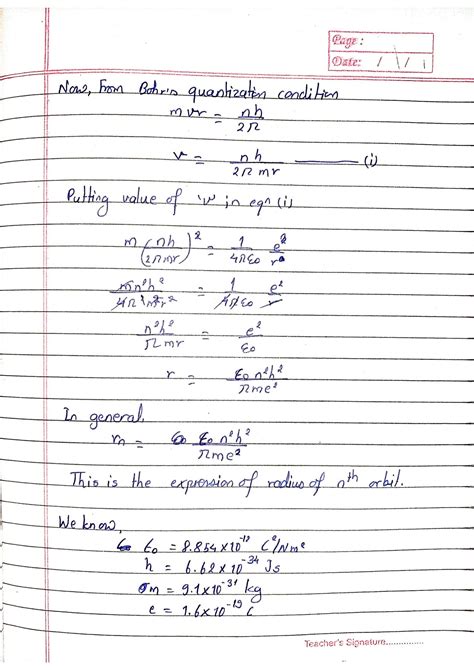 Page :
Date: / /
Now, from Bohr's quantization condition
mvr = nh / 2π
v = nh / 2π mr ——— (i)
Putting value of 'v' in eqn (i)
m (nh / 2π mr)² = 1 / 4πε₀ e² / r
mn²h² / 4π²m²r² = 1 / 4πε₀ e² / r
n²h² / π mr = e² / ε₀
r = ε₀ n²h² / πme²
In general,
rn = ε₀ n²h² / πme²
This is the expression of radius of nth orbit.
We know,
ε₀ = 8.854 × 10⁻¹² C²/Nm²
h = 6.62 × 10⁻³⁴ Js
m = 9.1 × 10⁻³¹ kg
e = 1.6 × 10⁻¹⁹ C
Teacher's Signature...............